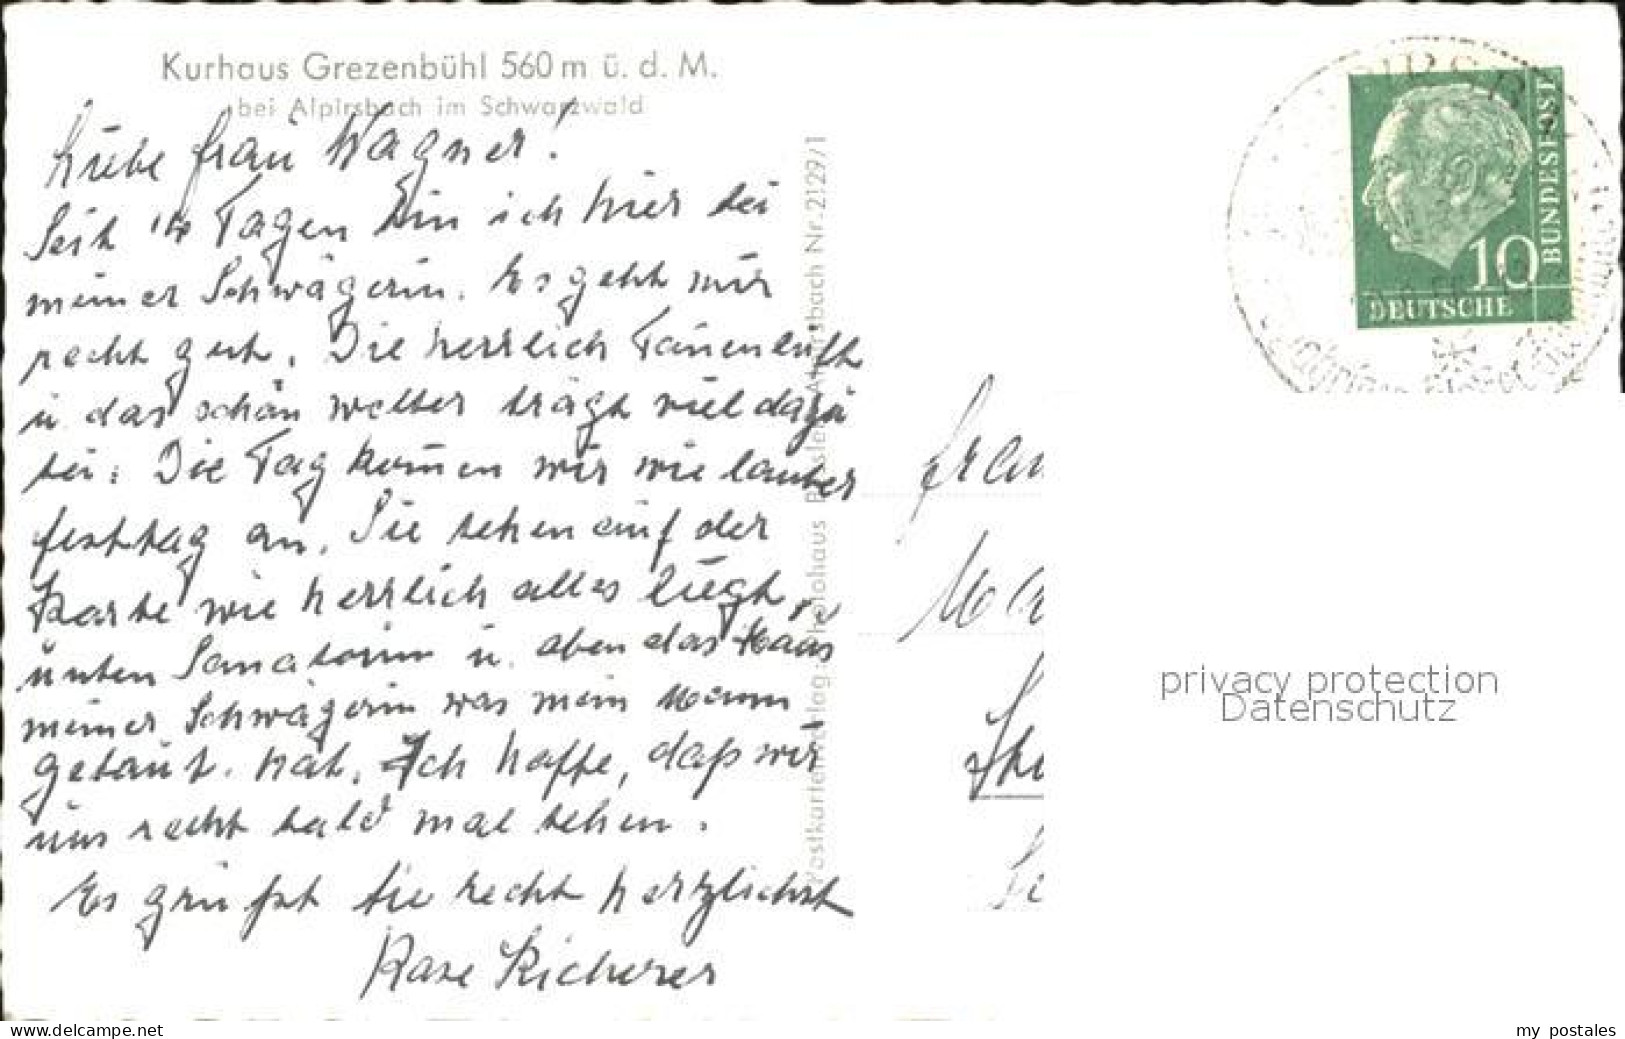 Kurhaus Grezenbühl 560 m ü. d. M.
bei Alpirsbach im Schwarzwald
Liebe Frau Wagner!
Seit 14 Tagen bin ich hier bei
meiner Schwägerin. Es geht mir
recht gut. Die herrlich Tannenluft
u das schön wetter trägt viel dazu
bei. Die Tag kommen wir wie lauter
festtag an. Sie sehen auf der
Karte wie herrlich alles liegt
unten Sanatorium u. oben das Haus
meiner Schwägerin was mein Mann
gebaut. hat. Ich hoffe, daß wir
uns recht bald mal sehen.
Es grüßt Sie recht herzlichst
Rose Richerer
Postkartenverlag: Photohaus Alpirsbach Nr. 2129/1
BUNDESPOST
10
DEUTSCHE
Frau
privacy protection
Datenschutz
www.delcampe.net
my postales